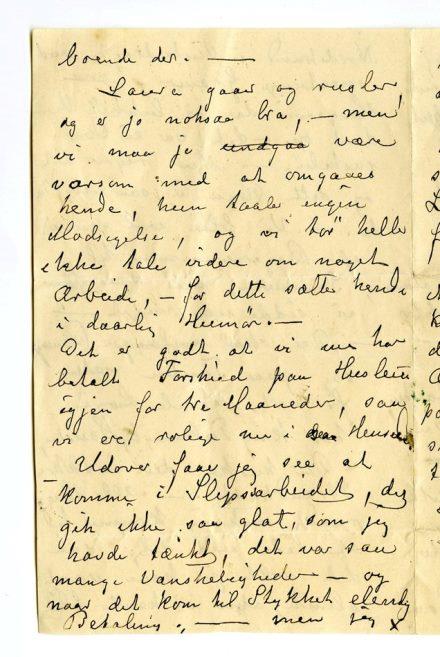 boende der. —
Laura gaar og rusler,
og er jo noksaa bra, – men
vi maa jo undgaa være
varsom med at omgaaes
hende, hun taaler ingen
Modsigelse, og vi tør heller
ikke tale videre om noget
Arbeide, – for dette sætter hende
i daarlig Humør. –
Det er godt at vi nu har
betalt Forskud paa Husleien
igjen for tre Maaneder, saa
vi er rolige nu i Henseende.
Udover faar jeg see at
komme i Slipsarbeidet, det
gik ikke saa glat, som jeg
havde tænkt, det var saa
mange Vanskeligheder – og
naar det kom til Stykket elendig
Betaling. — men jeg x